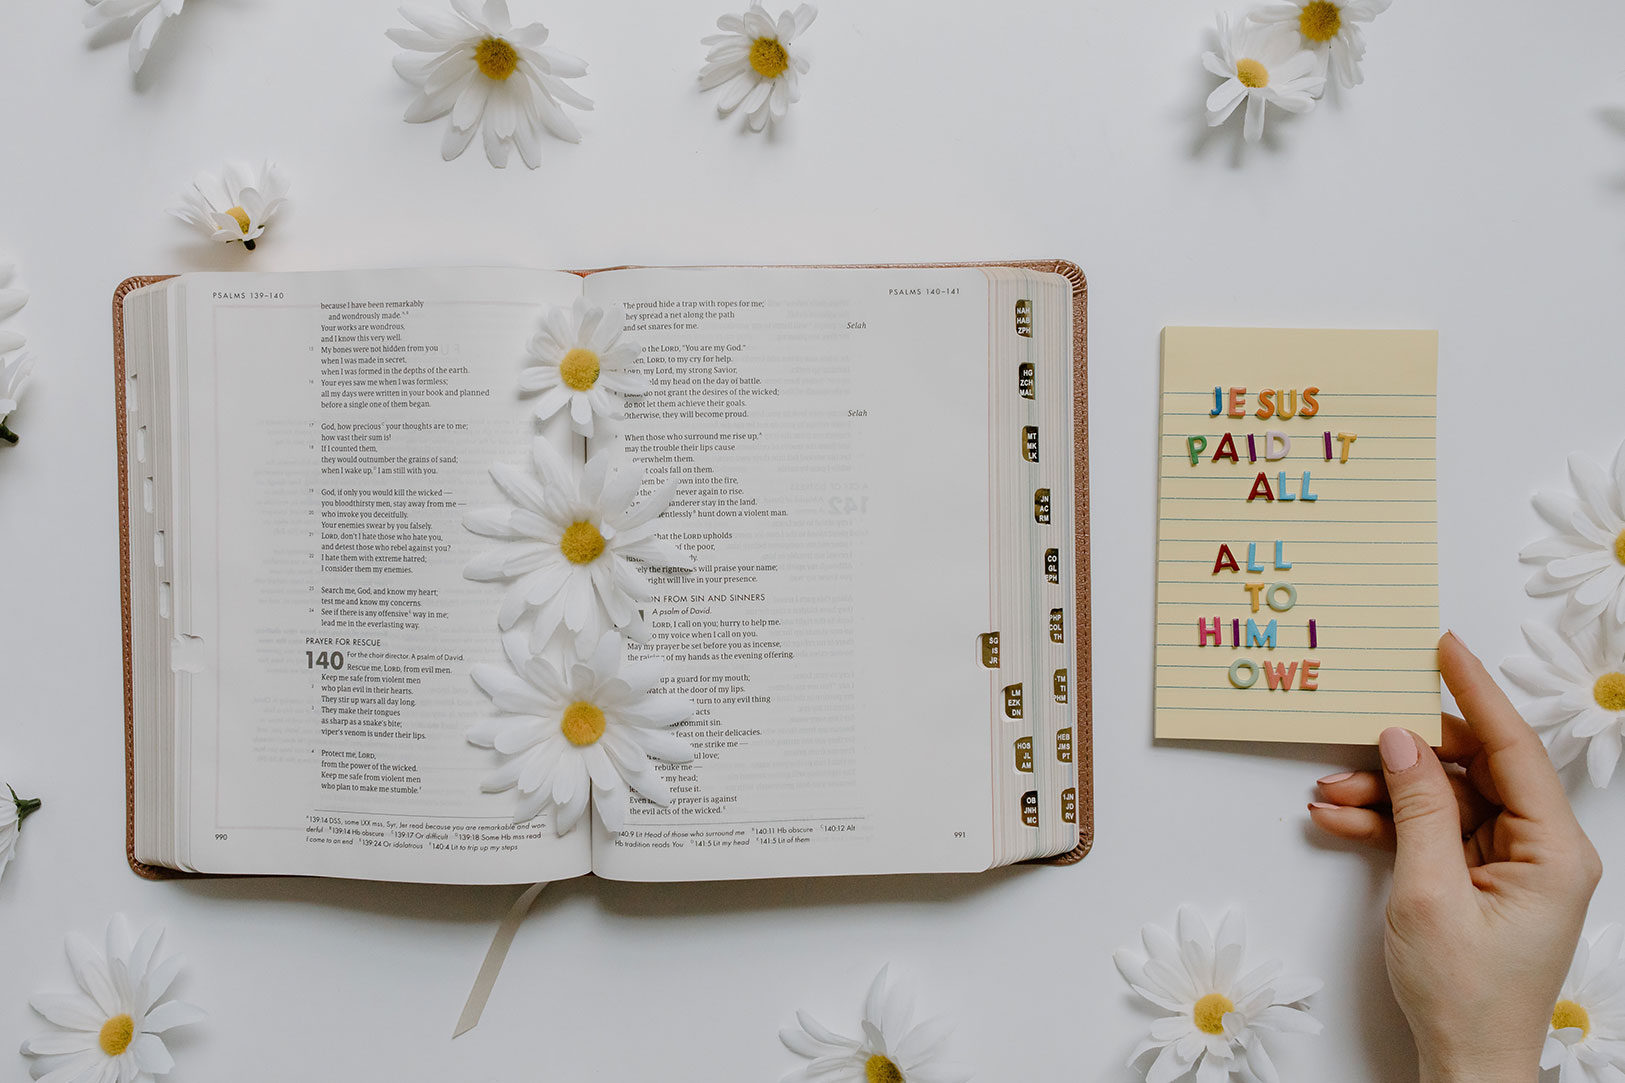 PSALMS 139–140
because I have been remarkably
and wondrously made.
Your works are wondrous,
and I know this very well.
15 My bones were not hidden from you
when I was made in secret,
when I was formed in the depths of the earth.
16 Your eyes saw me when I was formless;
all my days were written in your book and planned
before a single one of them began.
17 God, how precious your thoughts are to me;
how vast their sum is!
18 If I counted them,
they would outnumber the grains of sand;
when I wake up, I am still with you.
19 God, if only you would kill the wicked —
you bloodthirsty men, stay away from me —
20 who invoke you deceitfully.
Your enemies swear by you falsely.
21 LORD, don't I hate those who hate you,
and detest those who rebel against you?
22 I hate them with extreme hatred;
I consider them my enemies.
23 Search me, God, and know my heart;
test me and know my concerns.
24 See if there is any offensive way in me;
lead me in the everlasting way.
PRAYER FOR RESCUE
140 For the choir director. A psalm of David.
Rescue me, LORD, from evil men.
Keep me safe from violent men
2 who plan evil in their hearts.
They stir up wars all day long.
3 They make their tongues
as sharp as a snake's bite;
viper's venom is under their lips.
4 Protect me, LORD,
from the power of the wicked.
Keep me safe from violent men
who plan to make me stumble.
139:14 DSS, some LXX mss, Syr, Jer read because you are remarkable and won-
derful 139:14 Hb obscure 139:17 Or difficult 139:18 Some Hb mss read
I come to an end 139:24 Or idolatrous 140:4 Lit to trip up my steps
990
PSALMS 140–141
The proud hide a trap with ropes for me;
hey spread a net along the path
and set snares for me. Selah
o the LORD, "You are my God."
en, LORD, to my cry for help.
LORD, my Lord, my strong Savior,
eld my head on the day of battle.
LORD, do not grant the desires of the wicked;
do not let them achieve their goals.
Otherwise, they will become proud. Selah
9 When those who surround me rise up,
may the trouble their lips cause
overwhelm them.
10 t coals fall on them.
em be own into the fire,
o the never again to rise.
anderer stay in the land.
entlessly hunt down a violent man.
that the LORD upholds
of the poor,
ely the righteous will praise your name;
right will live in your presence.
ON FROM SIN AND SINNERS
A psalm of David.
LORD, I call on you; hurry to help me.
o my voice when I call on you.
May my prayer be set before you as incense,
the raising of my hands as the evening offering.
up a guard for my mouth;
watch at the door of my lips.
turn to any evil thing
acts
o commit sin.
e feast on their delicacies.
one strike me —
ul love;
rebuke me —
my head;
refuse it.
Even my prayer is against
the evil acts of the wicked.
140:9 Lit Head of those who surround me 140:11 Hb obscure 140:12 Alt
Hb tradition reads You 141:5 Lit my head 141:5 Lit of them
991
NAH
HAB
ZPH
HG
ZCH
MAL
MT
MK
LK
JN
AC
RM
CO
GL
EPH
PHP
COL
TH
SG
IS
JR
TM
TI
PHM
LM
EZK
DN
HEB
JMS
PT
HOS
JL
AM
OB
JNH
MC
1JN
JD
RV
JESUS
PAID IT
ALL
ALL
TO
HIM I
OWE